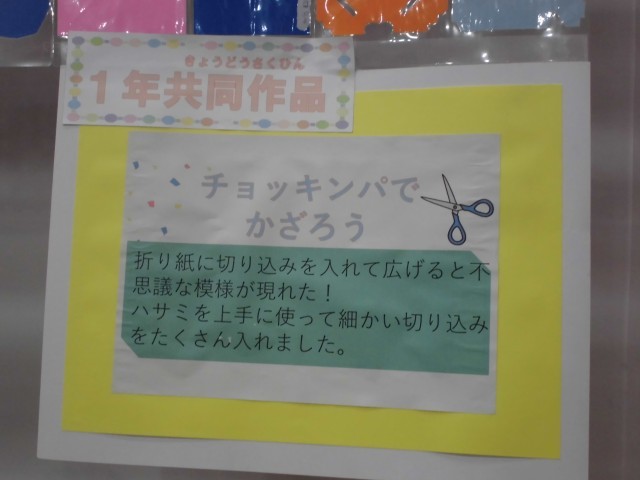 きょうどうさくひん
1年共同作品
チョッキンパで
かざろう
折り紙に切り込みを入れて広げると不
思議な模様が現れた！
ハサミを上手に使って細かい切り込み
をたくさん入れました。